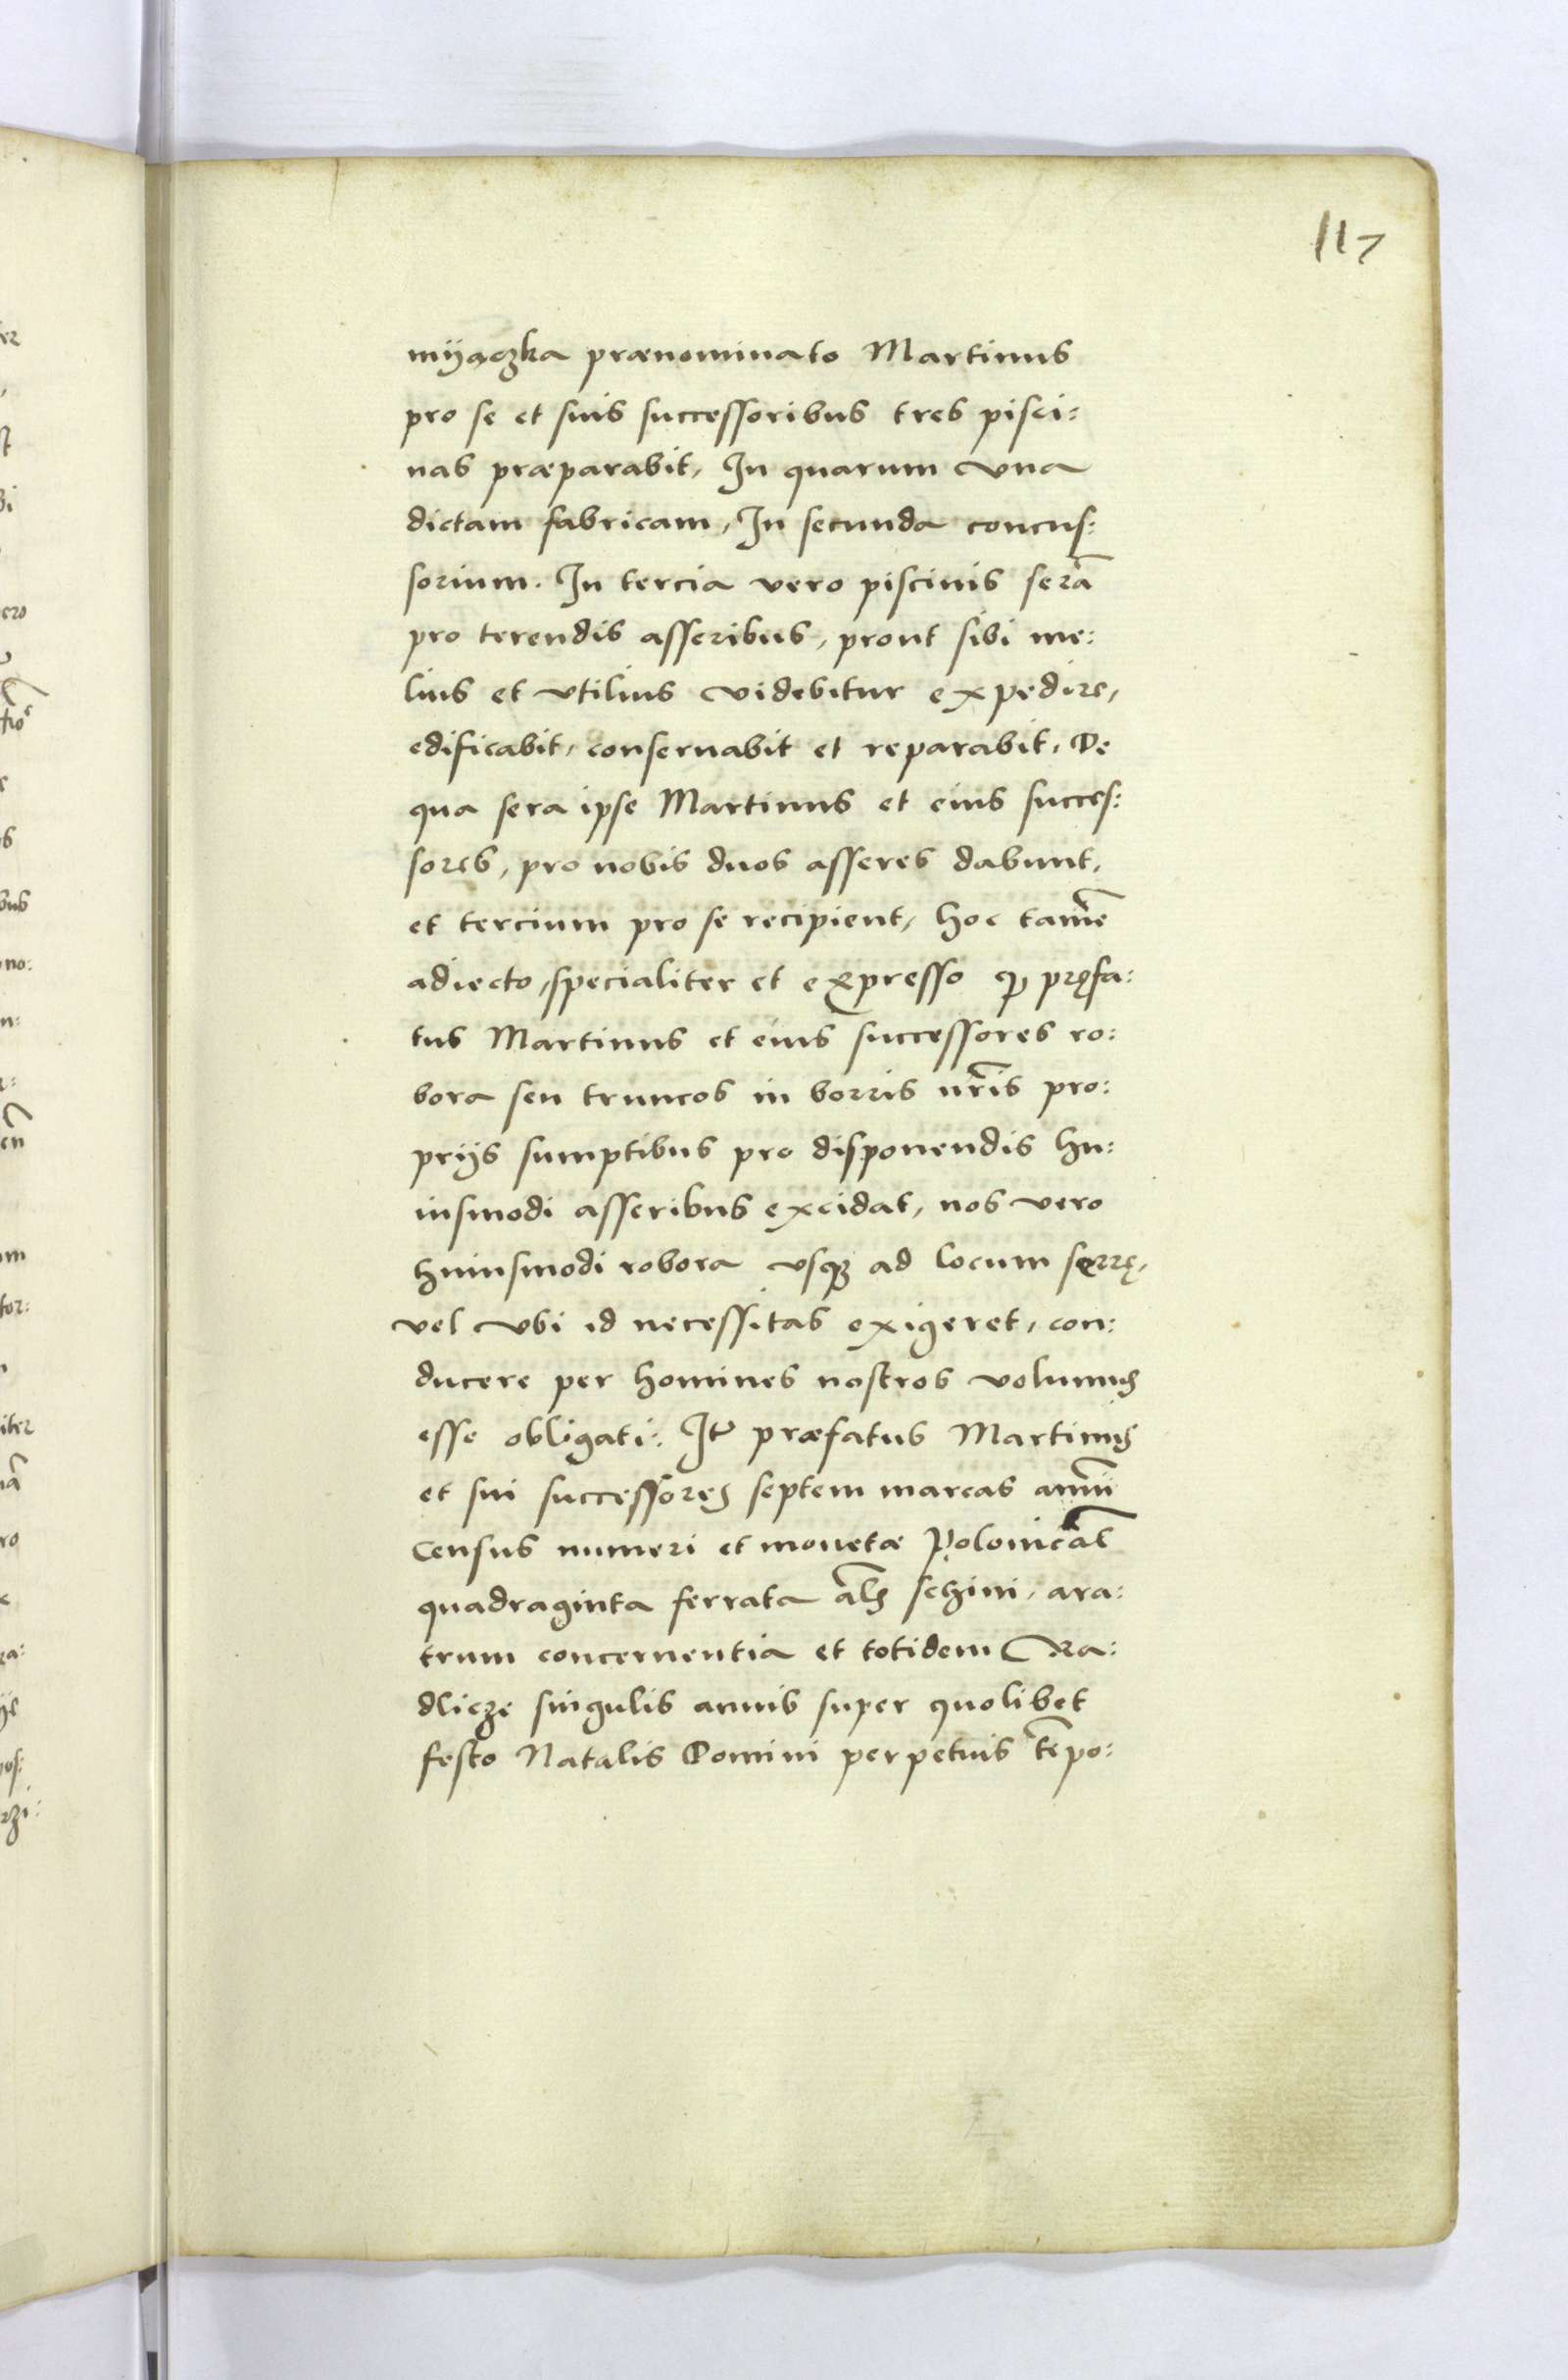 117
mÿączka prænominato Martinus
pro se et suis successoribus tres pisci:
nas præparabit, In quarum vna
dictam fabricam, In secunda concus:
sorium. In tercia vero piscinis serā
pro terendis asseribus, prout sibi me:
lius et vtilius videbitur expedire,
edificabit, conseruabit et reparabit, De
qua sera ipse Martinus et eius succes:
sores, pro nobis duos asseres dabunt,
et tercium pro se recipient, hoc tamē
adiecto, specialiter et expresso ꝙ pręfa:
tus Martinus et eius successores ro:
bora seu truncos in borris nr̄is pro:
prijs sumptibus pro disponendis hu:
iusmodi asseribus excidat, nos vero
huiusmodi robora vsqꝫ ad locum serrę,
vel vbi id necessitas exigeret, con:
ducere per homines nostros volumus
esse obligati: It præfatus Martinus
et sui successores septem marcas annui
Census numeri et monetæ Polonicāl
quadraginta ferrata als schini, ara:
trum concernentia et totidem Ra:
dlicze singulis annis super quolibet
festo Natalis Domini perpetuis tēpo: